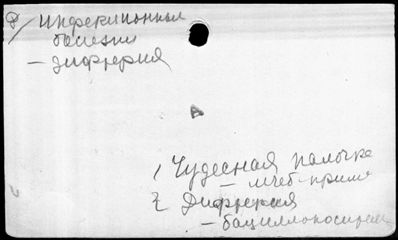 Р/ Инфекционные
болезни
– дифтерия
А
1 Чудесная палочка
– лечеб-прим
2 Дифтерия
– бациллоносител